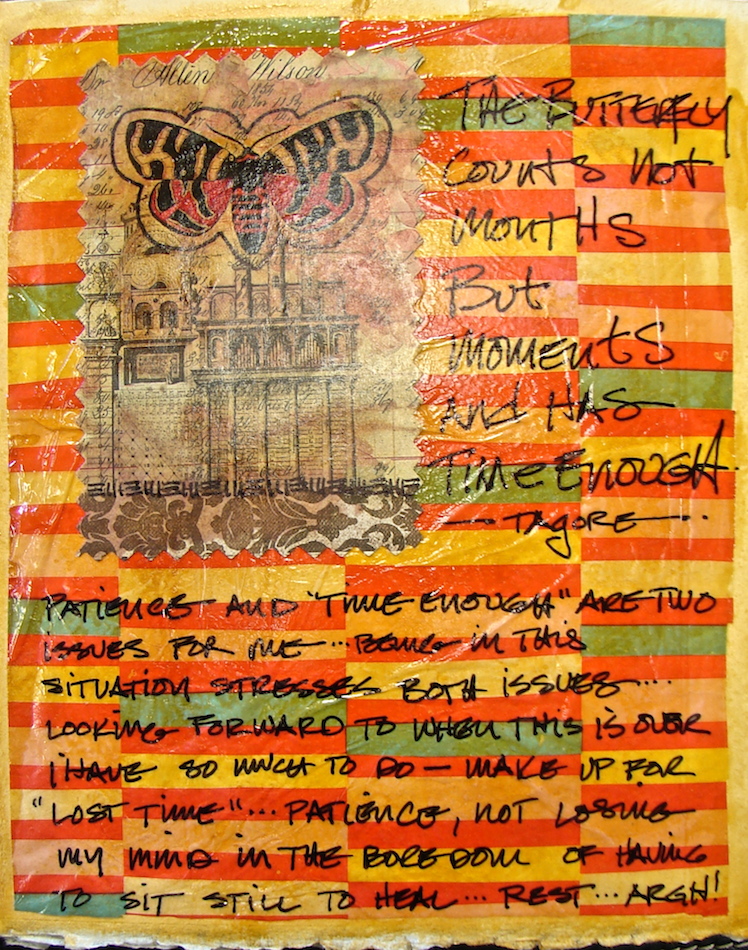 Allen Wilson
The Butterfly
Counts not
months
But
moments
and has
Time Enough.
— Tagore —..
Patience and "Time enough" are two
issues for me... Being in this
situation stresses both issues....
Looking forward to when this is over
i have so much to do — make up for
"Lost time"... patience, not losing
my mind in the boredom of having
to sit still to heal... rest... argh!